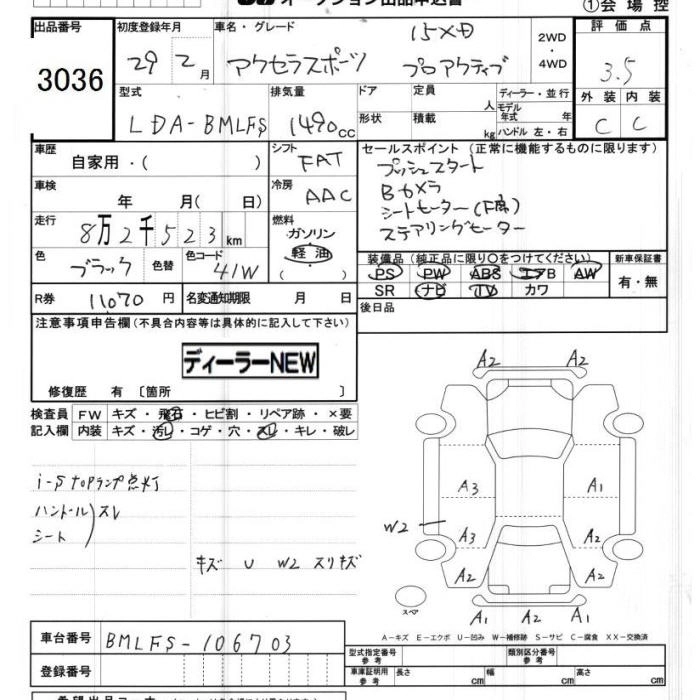 オークション出品申込書 ①会場控
出品番号 初度登録年月 車名・グレード 15XD 2WD 評価点
3036 29年 2月 アクセラスポーツ プロアクティブ ・4WD 3.5
型式 排気量 ドア 定員 人 ディーラー・並行 外装 内装
LDA-BMLFS 1490cc 形状 積載 kg モデル年式 年 ハンドル 左・右 C C
車歴 自家用・( ) シフト FAT セールスポイント(正常に機能するものに限ります)
プッシュスタート
車検 年 月( 日) 冷房 AAC Bカメラ
シートヒーター(F席)
走行 8万2千523km 燃料 ガソリン 軽油 ( ) ステアリングヒーター
色 ブラック 色替 色コード 41W 装備品(純正品に限り○をつけてください) 新車保証書
PS PW ABS エアB AW 有・無
SR ナビ TV カワ
R券 11070円 名変通知期限 月 日 後日品
注意事項申告欄(不具合内容等は具体的に記入して下さい)
ディーラーNEW
修復歴 有〔箇所 〕
検査員 FW キズ・飛石・ヒビ割・リペア跡・×要
記入欄 内装 キズ・汚レ・コゲ・穴・スレ・キレ・破レ
A2 A2
A2 A2
i-s topランプ点灯 A3 A1
ハンドル スレ
シート W2 A3 A1
キズ U W2 スリキズ A2 A2
スペア A1 A1 A2
A-キズ E-エクボ U-凹み W-補修跡 S-サビ C-腐食 XX-交換済
車台番号 BMLFS-106703
型式指定番号 参考 類別区分番号 参考
登録番号 車体証明用 参考 長さ cm 幅 cm 高さ cm